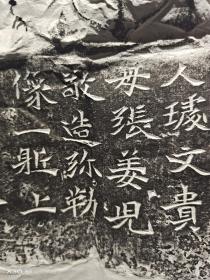 人璩文貴
母張姜児
敬造弥勒
像一軀上